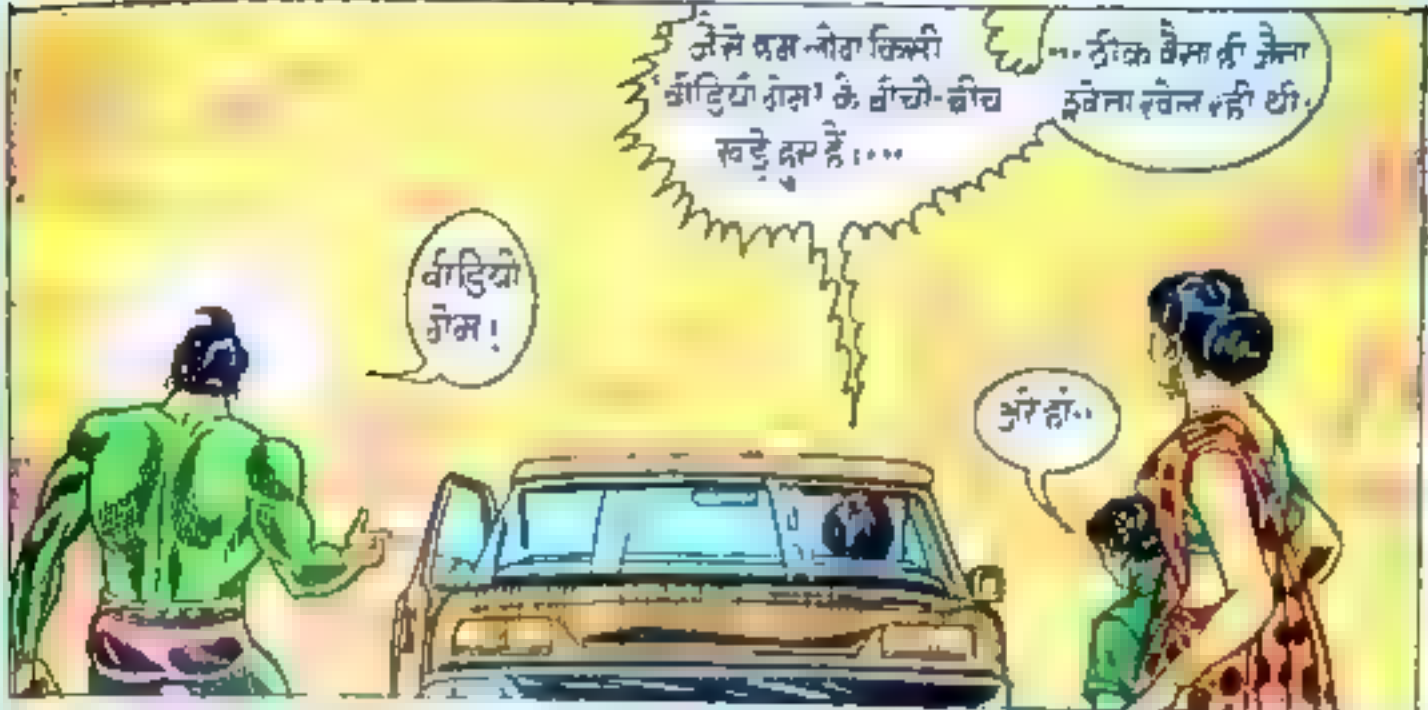 जैसे हम लोग किसी
'वीडियो गेम' के बीचों-बीच
खड़े हुए हैं।...
...ठीक वैसा ही जैसा
श्वेता खेल रही थी।
वीडियो
गेम!
अरे हां..